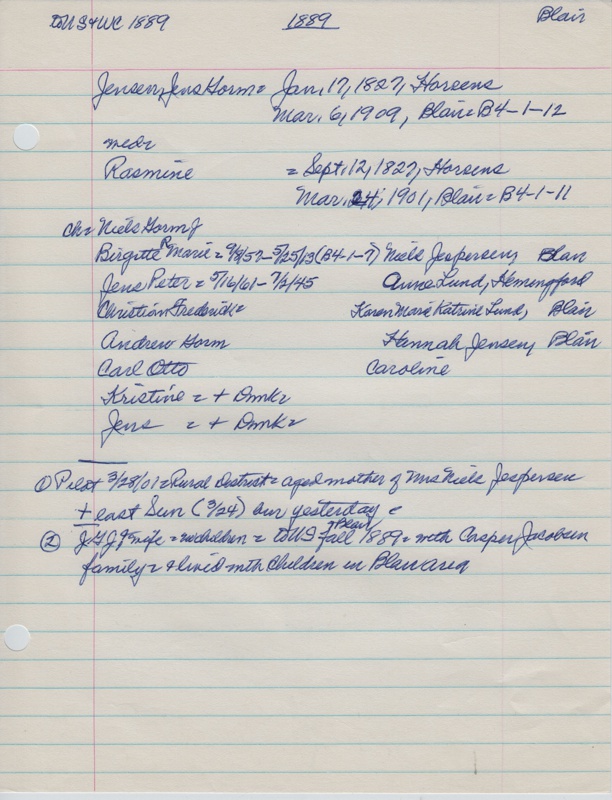 to US & WC 1889 1889 Blair
Jensen, Jens Gorm = Jan. 17, 1827, Horsens
Mar. 6, 1909, Blair = B4-1-12
med =
Rasmine = Sept. 12, 1827, Horsens
Mar. 24, 1901, Blair = B4-1-11
ch = Niels Gorm J
Birgitte Marie = 9/8/57 - 5/25/13 (B4-1-7) Niels Jespersen, Blair
Jens Peter = 5/16/61 - 7/2/45 Anna Lund, Hemingford
Christian Frederick = Karen Marie Katrine Lund, Blair
Andrew Gorm Hannah Jensen, Blair
Carl Otto Caroline
Kristine = + Dmk =
Jens = + Dmk =
① Pilot 3/28/01 = Rural District = aged mother of Mrs Niels Jespersen
+ last Sun (3/24) bur yesterday =
② JGJ & wife = = to US Blair fall 1889 = with Casper Jacobsen
family = & lived with children in Blair area